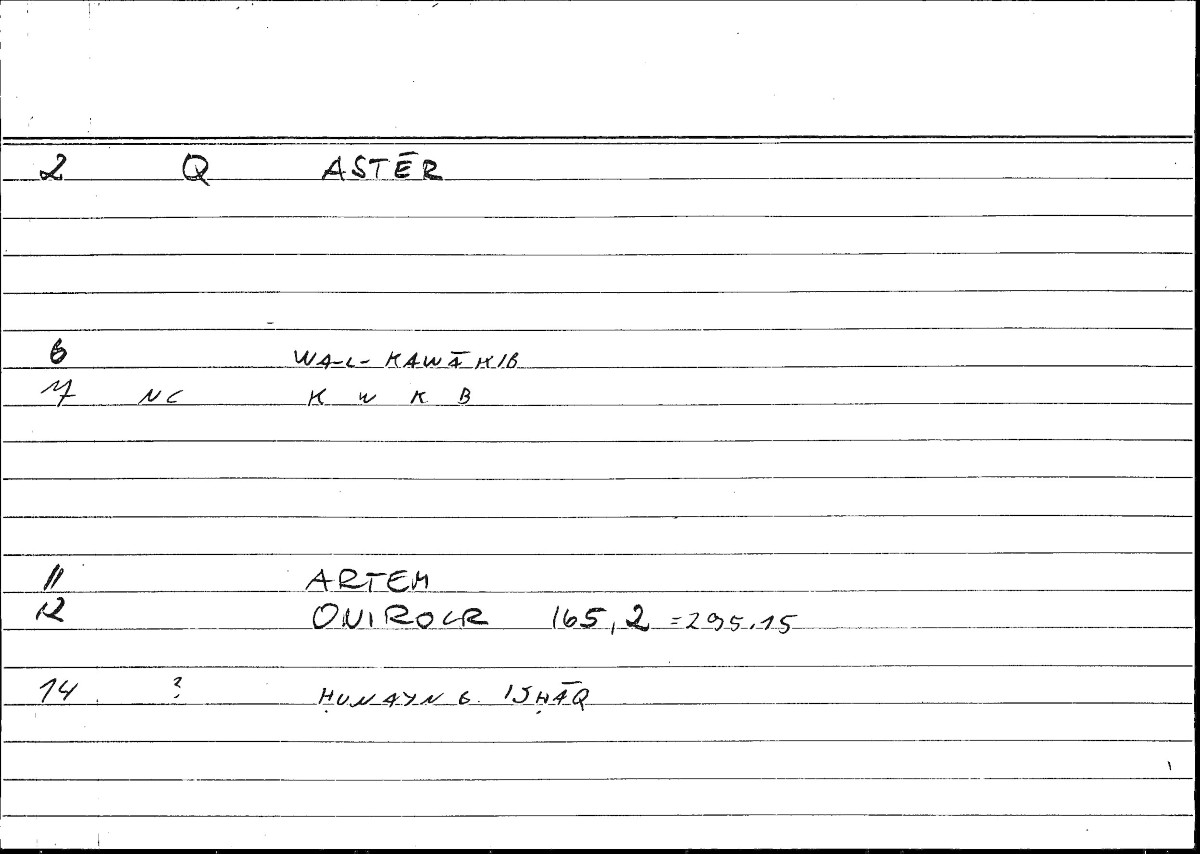 2 Q ASTĒR
6 WA-L-KAWĀKIB
7 NC K W K B
11 ARTEM
12 ONIROCR 165,2 =295.15
14 ? ḤUNAYN B. ISḤĀQ